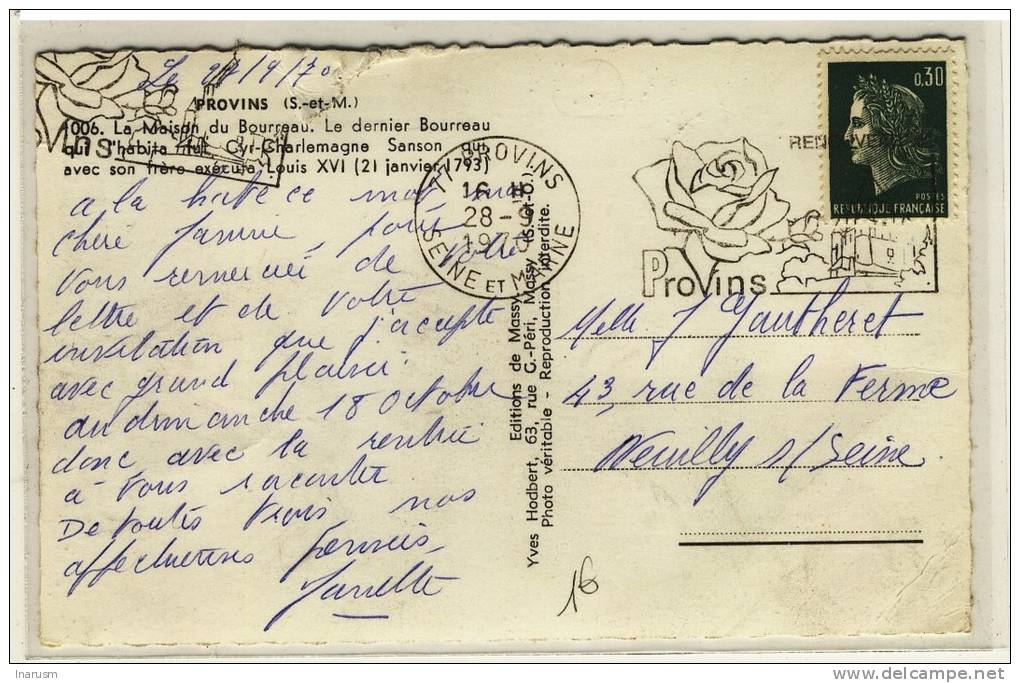 Le 27/9/70
PROVINS (S.-et-M.)
1006. La Maison du Bourreau. Le dernier Bourreau
qui l'habita fut Cyr-Charlemagne Sanson qui
avec son frère exécuta Louis XVI (21 janvier 1793)
a la hate ce mot ma
chere Jannine, pour
vous remercié de votre
lettre et de votre
invitation que j'accepte
avec grand plaisir
au dimanche 18 Octobre
donc avec la rentrée
à vous raconter
De toutes trois nos
affectueuses pensées
77 PROVINS
16 H
28-9
1970
SEINE ET MARNE
Provins
0,30
POSTES
REPUBLIQUE FRANÇAISE
Editions de Massy
Yves Hodbert, 63, rue G.-Péri, Massy (S.-et-O.)
Photo véritable - Reproduction interdite.
Melle J Gautheret
43, rue de la Ferme
Neuilly s/Seine
16
Inarusm
delcampe.net